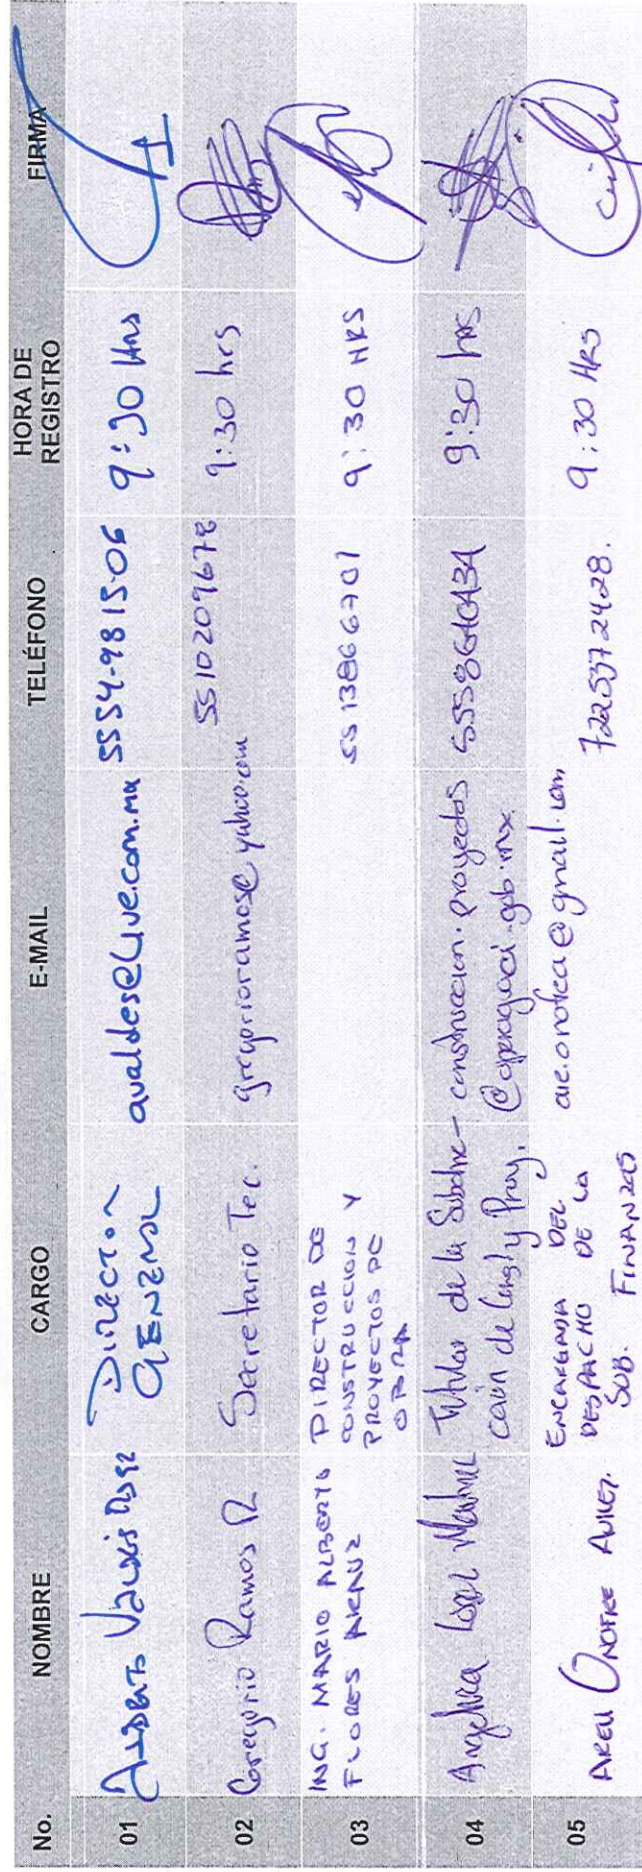 No. NOMBRE CARGO E-MAIL TELÉFONO HORA DE REGISTRO FIRMA
01 Alberto Valdés DIRECTOR GENERAL avaldes@live.com.mx 5554-98 15-06 9:30 Hrs
02 Gregorio Ramos R Secretario Tec. gregorioramose yahoo.com 5510209678 9:30 hrs
03 ING. MARIO ALBERTO FLORES ARAUZ DIRECTOR DE CONSTRUCCION Y PROYECTOS DE OBRA 5513866701 9:30 HRS
04 Angelica López Titular de la Subdirección de Const y Proy. construccion.proyectos 5558640434 9:30 hrs
05 ARELI ONOFRE ENCARGADA DEL DESPACHO DE LA SUB. FINANZAS 7225372428. 9:30 HRS